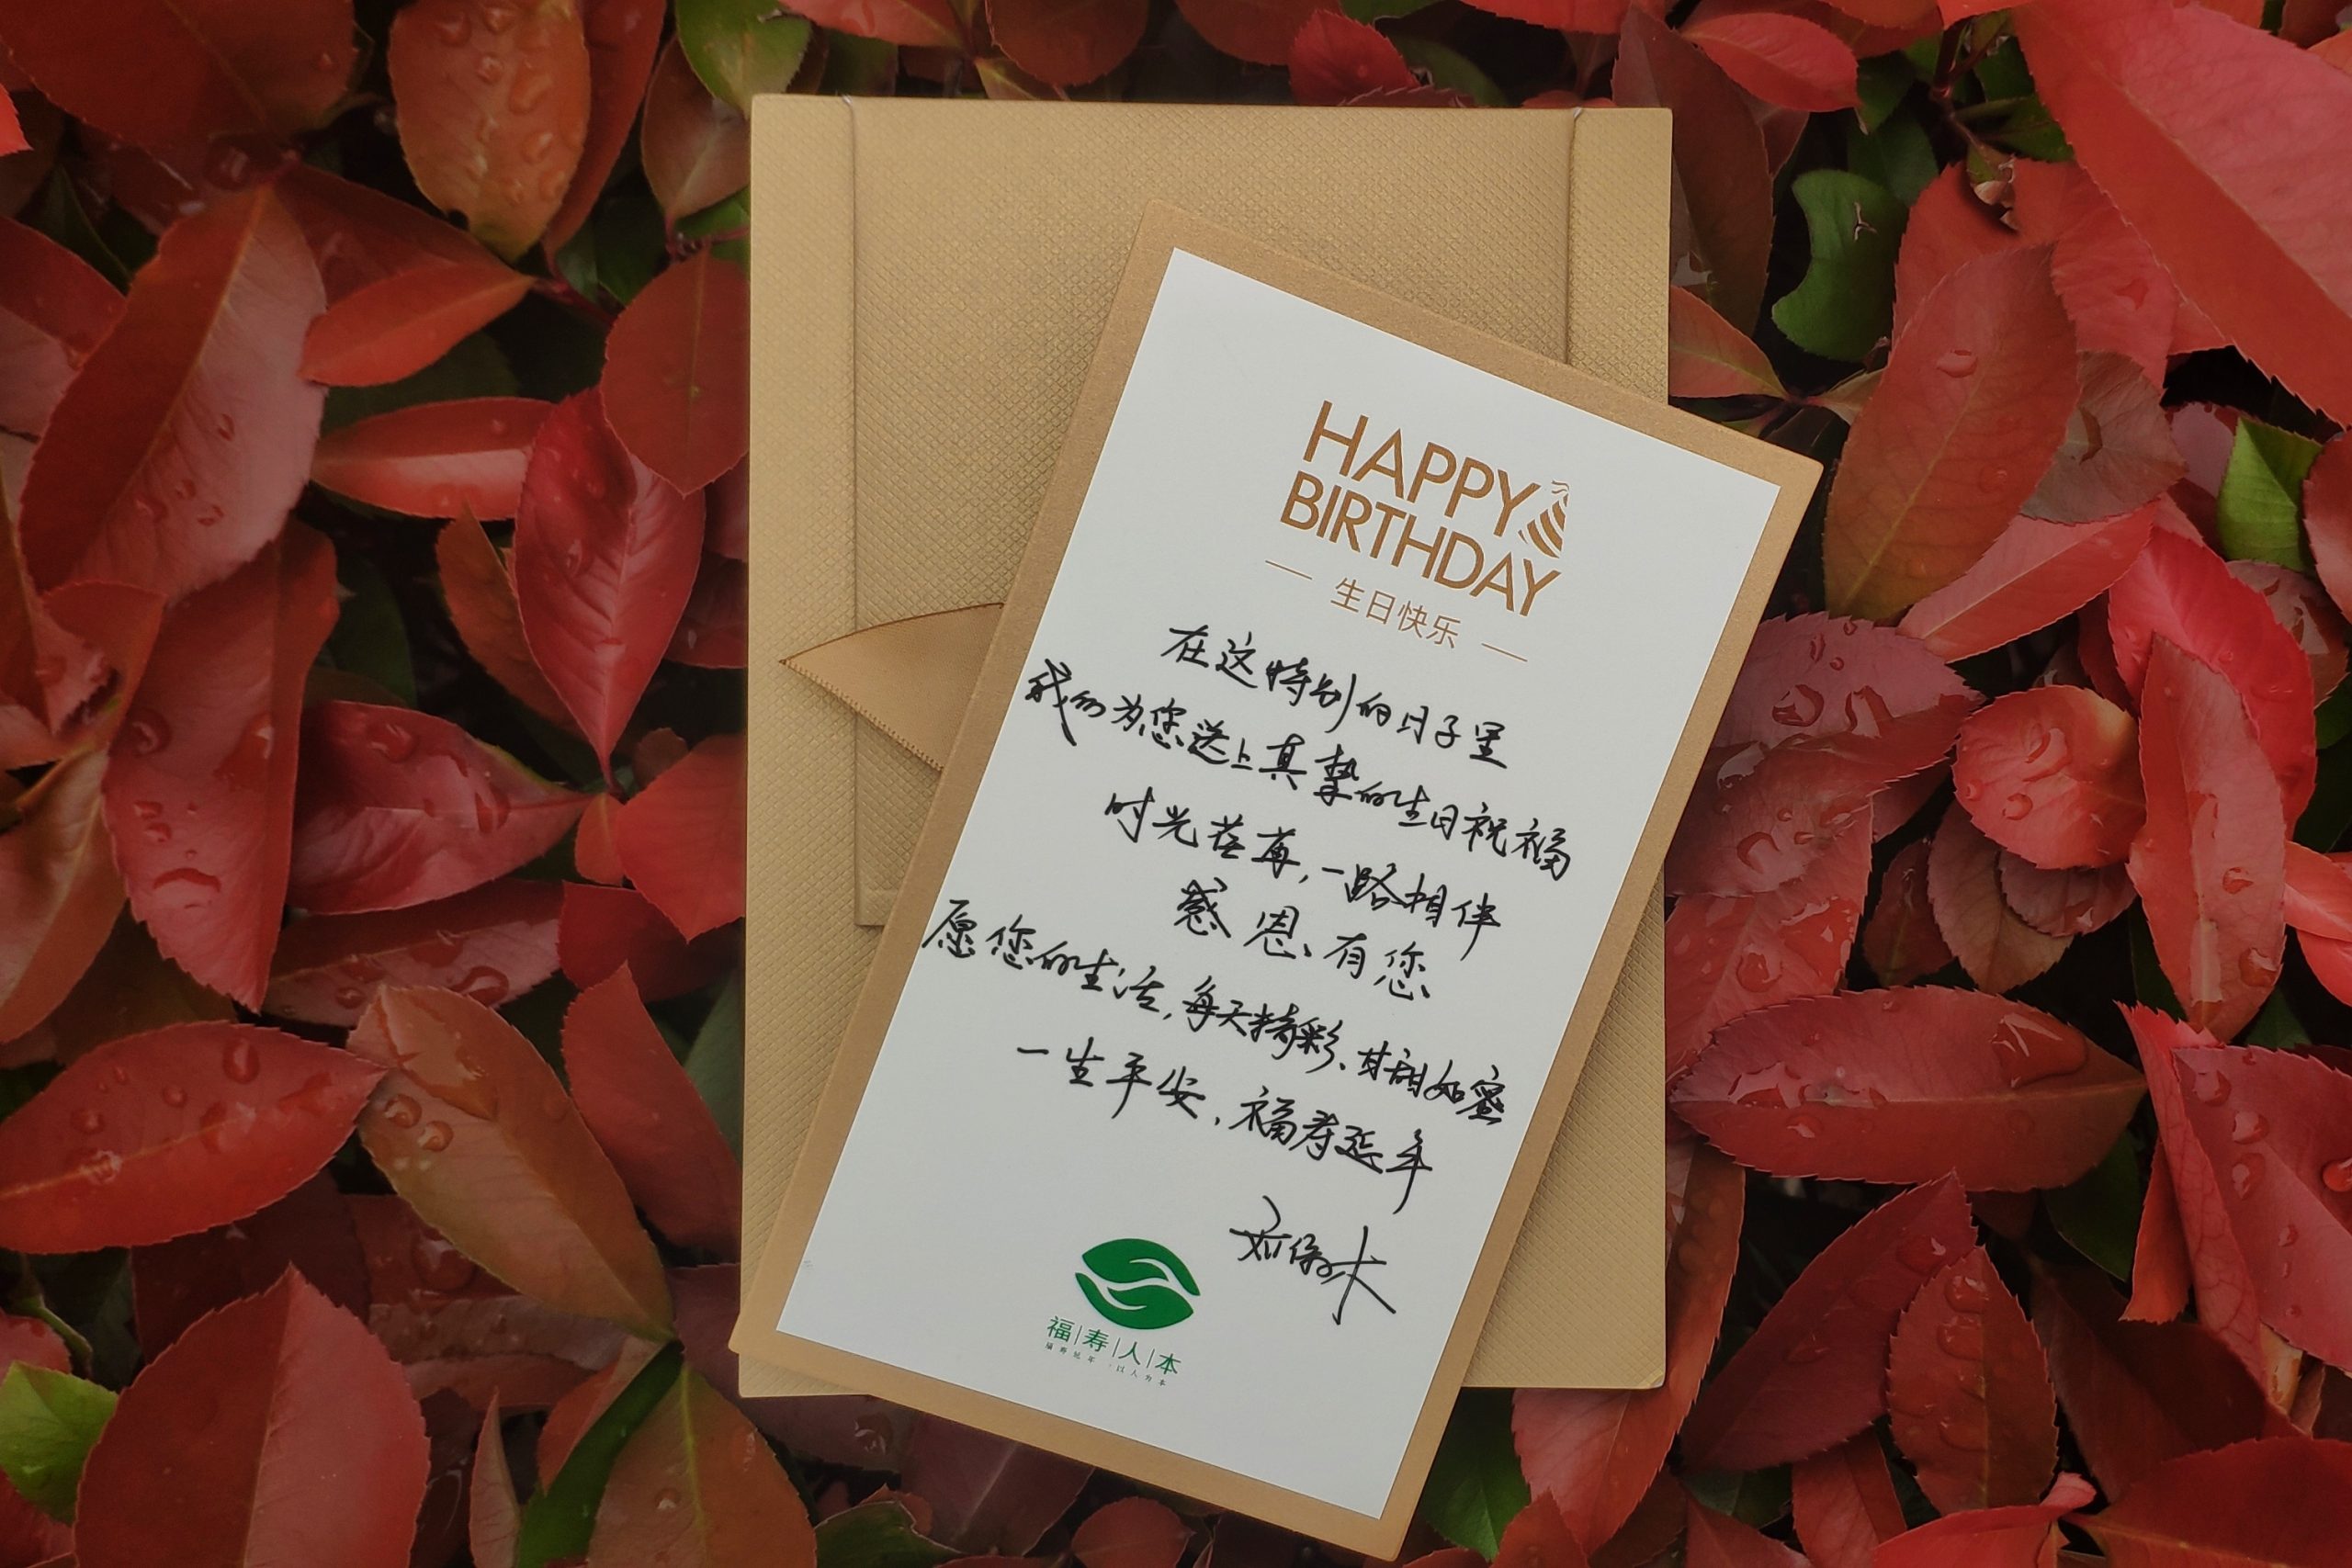 HAPPY
BIRTHDAY
生日快乐
在这特别的日子里
我们为您送上真挚的生日祝福
时光荏苒,一路相伴
感恩有您
愿您的生活,每天精彩、甘甜如蜜
一生平安,福寿延年
福|寿|人|本
福寿延年·以人为本